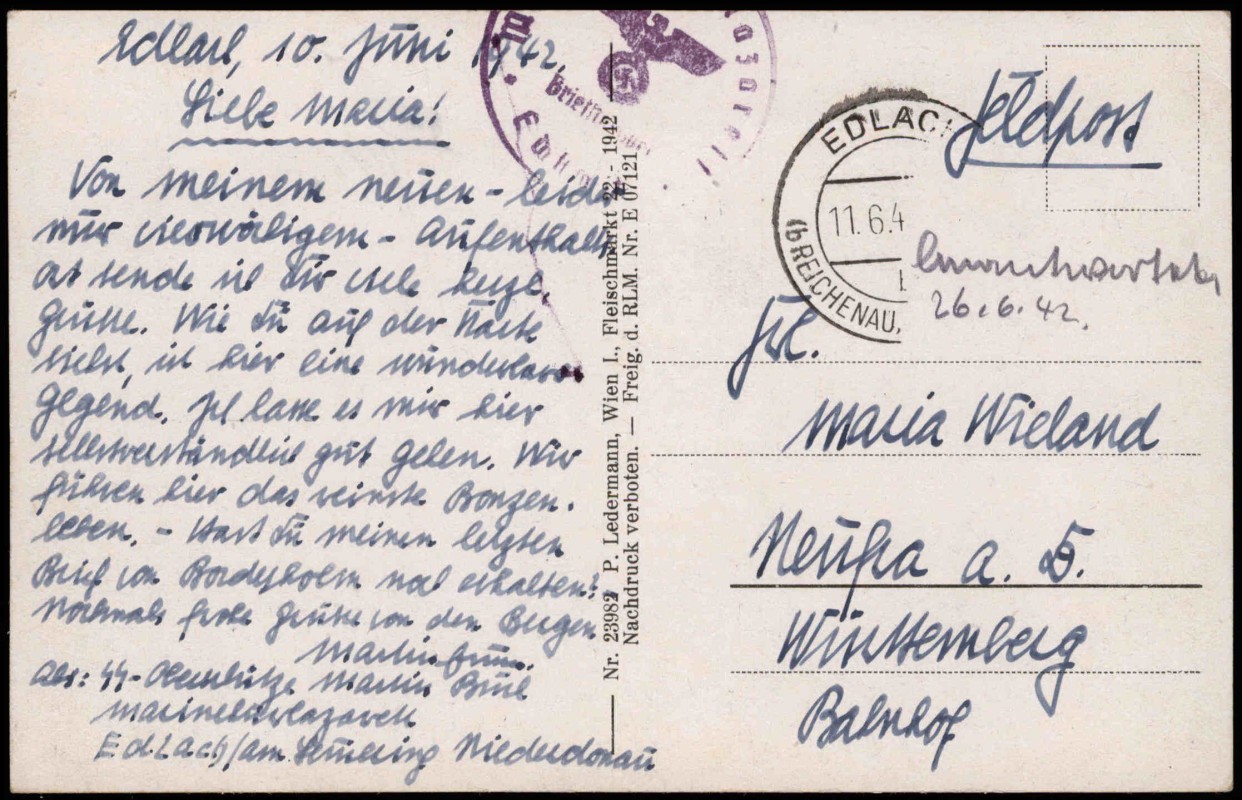 Edlach, 10. Juni 1942.
Liebe Maria!
Von meinem neuen - leider
nur vierwöchigem - Aufenthalts
ort sende ich Dir viele herzl.
Grüsse. Wie Du auf der Karte
siehst, ist hier eine wunderbare
Gegend. Ich lasse es mir hier
selbstverständlich gut gehen. Wir
führen hier das reinste Bonzen-
leben. - Hast Du meinen letzten
Brief von Bordesholm noch erhalten?
Nochmals frohe Grüsse von den Bergen
Martin
Abs: SS- Martin
Marinelazarett
Edlach/am Semmering Niederdonau
Nr. 23982 P. Ledermann, Wien I., Fleischmarkt 22 - 1942
Nachdruck verboten. — Freig. d. RLM. Nr. E 07121
Briefstempel
EDLACH
11.6.4
(b REICHENAU,
Feldpost
26.6.42.
Frl.
Maria Wieland
Neufra a. D.
Württemberg
Bahnhof